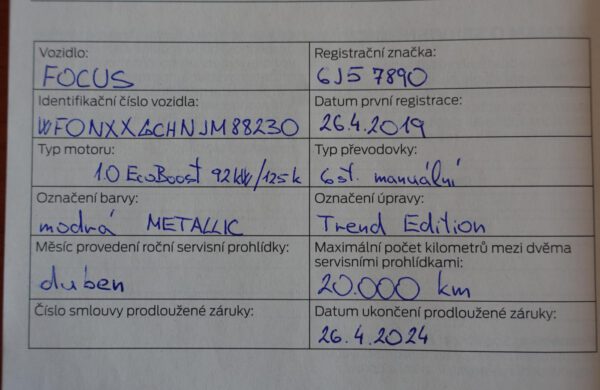 Vozidlo:
FOCUS
Registrační značka:
6J5 7890
Identifikační číslo vozidla:
WFONXXGCHNJM88230
Datum první registrace:
26.4.2019
Typ motoru:
1.0 EcoBoost 92kW/125k
Typ převodovky:
6st. manuální
Označení barvy:
modrá METALLIC
Označení úpravy:
Trend Edition
Měsíc provedení roční servisní prohlídky:
duben
Maximální počet kilometrů mezi dvěma
servisními prohlídkami:
20.000 km
Číslo smlouvy prodloužené záruky:
Datum ukončení prodloužené záruky:
26.4.2024